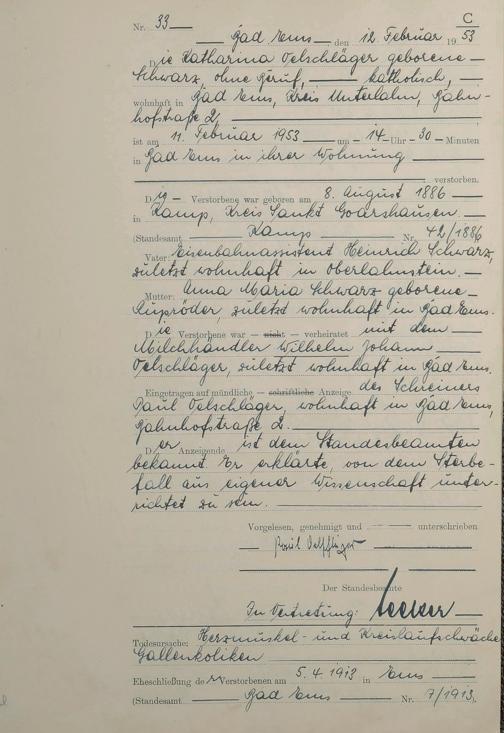 C
Nr. 33
Bad Ems den 12 Februar 1953
Die Katharina Oelschläger geborene
Schwarz, ohne Beruf, katholisch,
wohnhaft in Bad Ems, Kreis Unterlahn, Bahn-
hofstraße 2,
ist am 11. Februar 1953 um 14 Uhr 30 Minuten
in Bad Ems in ihrer Wohnung
verstorben.
Die Verstorbene war geboren am 8. August 1886
in Kamp, Kreis Sankt Goarshausen.
(Standesamt Kamp Nr. 42/1886
Vater: Eisenbahnassistent Heinrich Schwarz,
zuletzt wohnhaft in Oberlahnstein.
Mutter: Anna Maria Schwarz geborene
zuletzt wohnhaft in Bad Ems.
Die Verstorbene war – nicht – verheiratet mit dem
Milchhändler Wilhelm Johann
Oelschläger, zuletzt wohnhaft in Bad Ems.
Eingetragen auf mündliche – schriftliche Anzeige des Schreiners
Paul Oelschläger, wohnhaft in Bad Ems,
Bahnhofstraße 2.
Der Anzeigende ist dem Standesbeamten
bekannt. Er erklärte, von dem Sterbe-
fall aus eigener Wissenschaft unter-
richtet zu sein.
Vorgelesen, genehmigt und unterschrieben
Paul Oelschläger
Der Standesbeamte
In Vertretung:
Todesursache: Herzmuskel- und Kreislaufschwäche
Gallenkoliken
Eheschließung der Verstorbenen am 5.4.1913 in Ems
(Standesamt Bad Ems Nr. 7/1913).